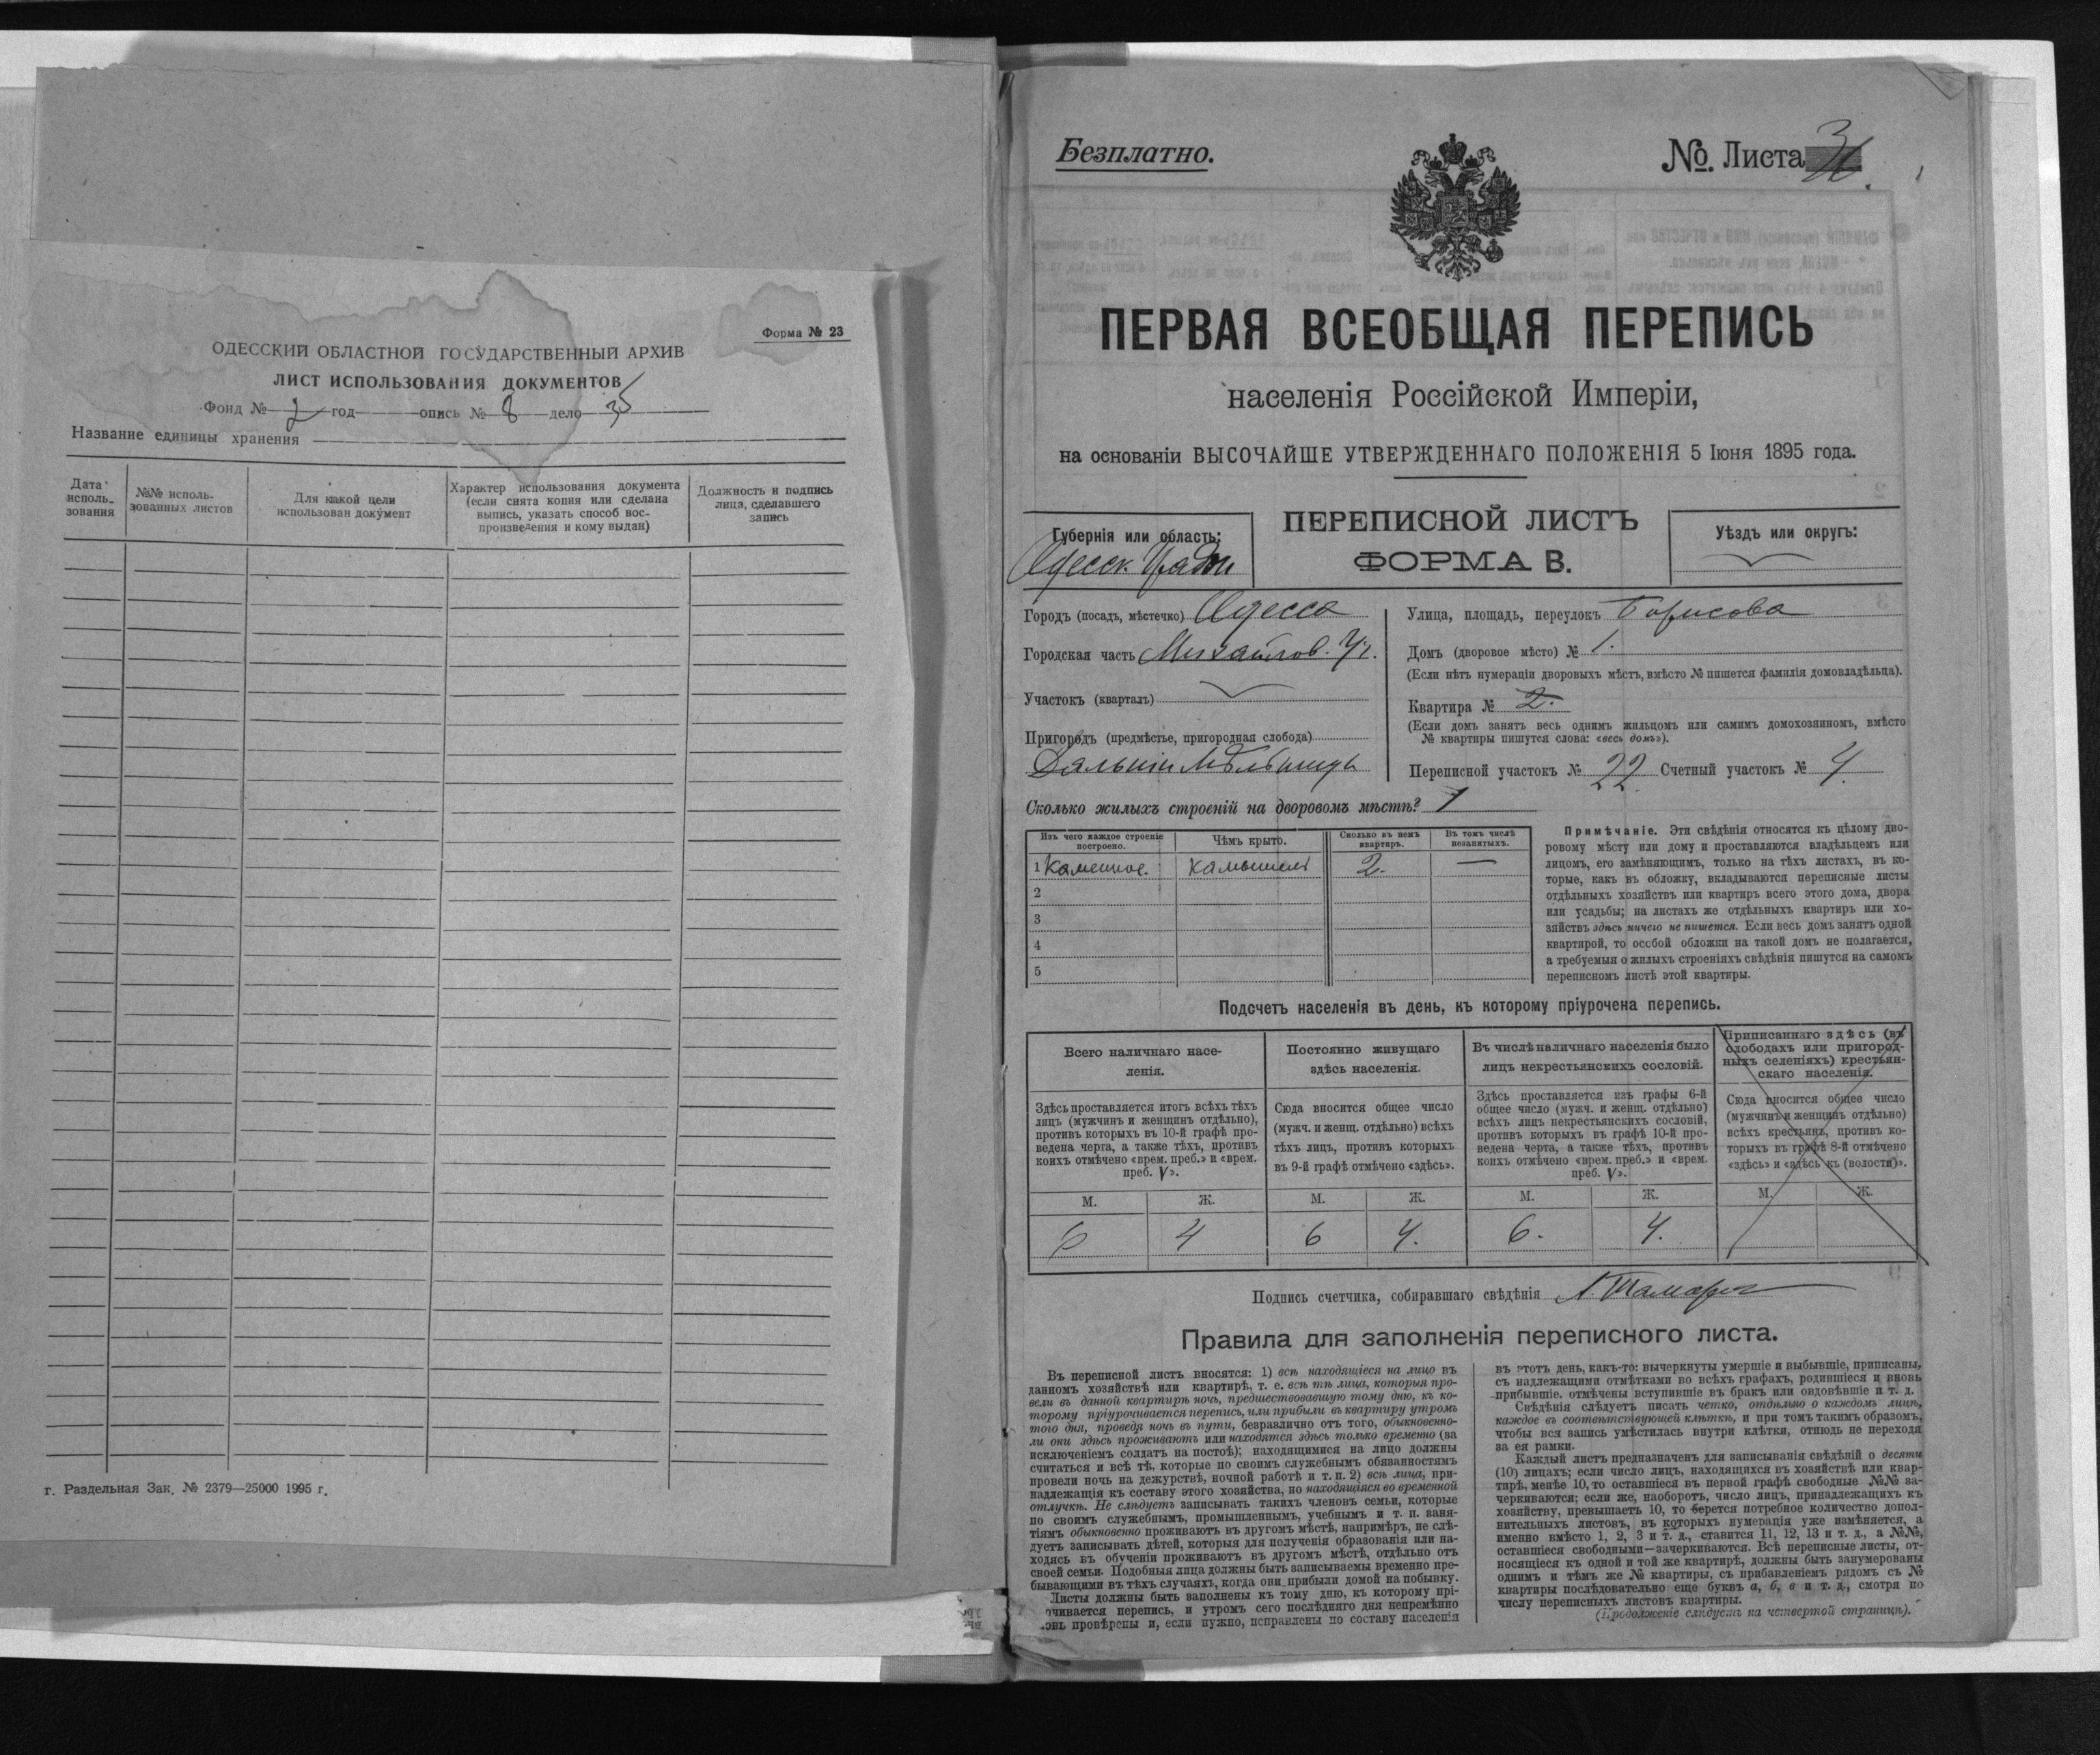 Форма № 23
ОДЕССКИЙ ОБЛАСТНОЙ ГОСУДАРСТВЕННЫЙ АРХИВ
ЛИСТ ИСПОЛЬЗОВАНИЯ ДОКУМЕНТОВ
Фонд № 2 год опись № 8 дело 35
Название единицы хранения
Дата исполь-
зования
№№ исполь-
зованных листов
Для какой цели
использован документ
Характер использования документа
(если снята копия или сделана
выпись, указать способ вос-
произведения и кому выдан)
Должность и подпись
лица, сделавшего
запись
г. Раздельная Зак. № 2379—25000 1995 г.
Безплатно.
№. Листа
ПЕРВАЯ ВСЕОБЩАЯ ПЕРЕПИСЬ
населенія Россійской Имперіи,
на основаніи ВЫСОЧАЙШЕ УТВЕРЖДЕННАГО ПОЛОЖЕНІЯ 5 Іюня 1895 года.
Губернія или область:
Одесск. Град
ПЕРЕПИСНОЙ ЛИСТЪ
ФОРМА В.
Уѣздъ или округъ:
Городъ (посадъ, мѣстечко) Одесса
Городская часть Михайлов. Уч.
Участокъ (кварталъ)
Пригородъ (предмѣстье, пригородная слобода)
Дальніи Мѣльницы
Улица, площадь, переулокъ Борисова
Домъ (дворовое мѣсто) № 1.
(Если нѣтъ нумераціи дворовыхъ мѣстъ, вмѣсто № пишется фамилія домовладѣльца).
Квартира № 2.
(Если домъ занятъ весь однимъ жильцомъ или самимъ домохозяиномъ, вмѣсто
№ квартиры пишутся слова: «весь домъ»).
Переписной участокъ № 22 Счетный участокъ № 4.
Сколько жилыхъ строеній на дворовомъ мѣстѣ? 1
Изъ чего каждое строеніе
построено.
Чѣмъ крыто.
Сколько въ немъ
квартиръ.
Въ томъ числѣ
незанятыхъ.
1 Каменное. камышемъ 2. —
2
3
4
5
Примѣчаніе. Эти свѣдѣнія относятся къ цѣлому дво-
ровому мѣсту или дому и проставляются владѣльцемъ или
лицомъ, его замѣняющимъ, только на тѣхъ листахъ, въ ко-
торые, какъ въ обложку, вкладываются переписные листы
отдѣльныхъ хозяйствъ или квартиръ всего этого дома, двора
или усадьбы; на листахъ же отдѣльныхъ квартиръ или хо-
зяйствъ здѣсь ничего не пишется. Если весь домъ занятъ одной
квартирой, то особой обложки на такой домъ не полагается,
а требуемыя о жилыхъ строеніяхъ свѣдѣнія пишутся на самомъ
переписномъ листѣ этой квартиры.
Подсчетъ населенія въ день, къ которому пріурочена перепись.
Всего наличнаго насе-
ленія.
Здѣсь проставляется итогъ всѣхъ тѣхъ
лицъ (мужчинъ и женщинъ отдѣльно),
противъ которыхъ въ 10-й графѣ про-
ведена черта, а также тѣхъ, противъ
коихъ отмѣчено «врем. преб.» и «врем.
преб. V».
М. Ж.
6 4
Постоянно живущаго
здѣсь населенія.
Сюда вносится общее число
(мужч. и женщ. отдѣльно) всѣхъ
тѣхъ лицъ, противъ которыхъ
въ 9-й графѣ отмѣчено «здѣсь».
М. Ж.
6 4.
Въ числѣ наличнаго населенія было
лицъ некрестьянскихъ сословій.
Здѣсь проставляется изъ графы 6-й
общее число (мужч. и женщ. отдѣльно)
всѣхъ лицъ некрестьянскихъ сословій,
противъ которыхъ въ графѣ 10-й про-
ведена черта, а также тѣхъ, противъ
коихъ отмѣчено «врем. преб.» и «врем.
преб. V».
М. Ж.
6. 4.
Приписаннаго здѣсь (въ
слободахъ или пригород-
ныхъ селеніяхъ) крестьян-
скаго населенія.
Сюда вносится общее число
(мужчинъ и женщинъ отдѣльно)
всѣхъ крестьянъ, противъ ко-
торыхъ въ графѣ 8-й отмѣчено
«здѣсь» и «здѣсь къ (волости)».
М. Ж.
Подпись счетчика, собиравшаго свѣдѣнія
Правила для заполненія переписного листа.
Въ переписной листъ вносятся: 1) всѣ находящіеся на лицо въ
данномъ хозяйствѣ или квартирѣ, т. е. всѣ тѣ лица, которыя про-
вели въ данной квартирѣ ночь, предшествовавшую тому дню, къ ко-
торому пріурочивается перепись, или прибыли въ квартиру утромъ
того дня, проведя ночь въ пути, безразлично отъ того, обыкновенно-
ли они здѣсь проживаютъ или находятся здѣсь только временно (за
исключеніемъ солдатъ на постоѣ); находящимися на лицо должны
считаться и всѣ тѣ, которые по своимъ служебнымъ обязанностямъ
провели ночь на дежурствѣ, ночной работѣ и т. п. 2) всѣ лица, при-
надлежащія къ составу этого хозяйства, но находящіяся во временной
отлучкѣ. Не слѣдуетъ записывать такихъ членовъ семьи, которые
по своимъ служебнымъ, промышленнымъ, учебнымъ и т. п. заня-
тіямъ обыкновенно проживаютъ въ другомъ мѣстѣ, напримѣръ, не слѣ-
дуетъ записывать дѣтей, которыя для полученія образованія или на-
ходясь въ обученіи проживаютъ въ другомъ мѣстѣ, отдѣльно отъ
своей семьи. Подобныя лица должны быть записываемы временно пре-
бывающими въ тѣхъ случаяхъ, когда они прибыли домой на побывку.
Листы должны быть заполнены къ тому дню, къ которому прі-
очивается перепись, и утромъ сего послѣдняго дня непремѣнно
овь провѣрены и, если нужно, исправлены по составу населенія
въ этотъ день, какъ-то: вычеркнуты умершіе и выбывшіе, приписаны,
съ надлежащими отмѣтками во всѣхъ графахъ, родившіеся и вновь
прибывшіе, отмѣчены вступившіе въ бракъ или овдовѣвшіе и т. д.
Свѣдѣнія слѣдуетъ писать четко, отдѣльно о каждомъ лицѣ,
каждое въ соотвѣтствующей клѣткѣ, и при томъ такимъ образомъ,
чтобы вся запись умѣстилась внутри клѣтки, отнюдь не переходя
за ея рамки.
Каждый листъ предназначенъ для записыванія свѣдѣній о десяти
(10) лицахъ; если число лицъ, находящихся въ хозяйствѣ или квар-
тирѣ, менѣе 10, то оставшіеся въ первой графѣ свободные №№ за-
черкиваются; если же, наоборотъ, число лицъ, принадлежащихъ къ
хозяйству, превышаетъ 10, то берется потребное количество допол-
нительныхъ листовъ, въ которыхъ нумерація уже измѣняется, а
именно вмѣсто 1, 2, 3 и т. д., ставится 11, 12, 13 и т. д., а №№,
оставшіеся свободными—зачеркиваются. Всѣ переписные листы, от-
носящіеся къ одной и той же квартирѣ, должны быть занумерованы
однимъ и тѣмъ же № квартиры, съ прибавленіемъ рядомъ съ №
квартиры послѣдовательно еще буквъ а, б, в и т. д., смотря по
числу переписныхъ листовъ квартиры.
(Продолженіе слѣдуетъ на четвертой страницѣ).